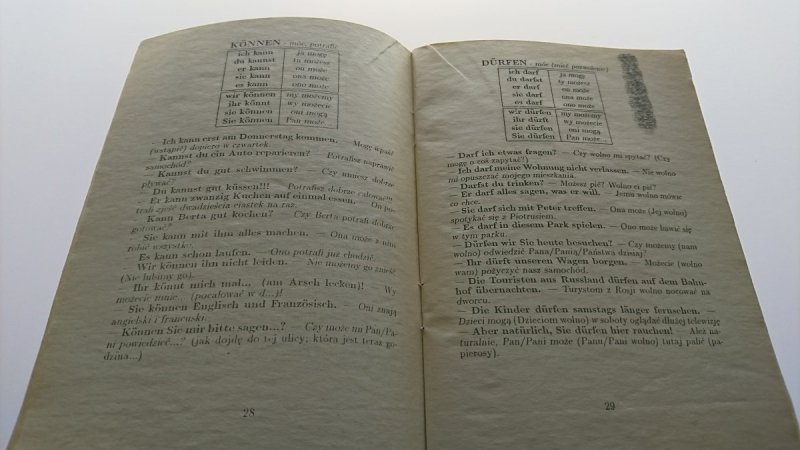 KÖNNEN - móc, potrafić
ich kann ja mogę
du kannst tu możesz
er kann on może
sie kann ona może
es kann ono może
wir können my możemy
ihr könnt wy możecie
sie können oni mogą
Sie können Pan może
— Ich kann erst am Donnerstag kommen. Mogę wpaść
(wstąpić) dopiero w czwartek.
— Kannst du ein Auto reparieren? Potrafisz naprawić
samochód?
— Kannst du gut schwimmen? — Czy umiesz dobrze
pływać?
— Du kannst gut küssen!!! Potrafisz dobrze całować
— Er kann zwanzig Kuchen auf einmal essen. — On po-
trafi zjeść dwadzieścia ciastek na raz.
— Kann Berta gut kochen? — Czy Berta potrafi dobrze
gotować?
— Sie kann mit ihm alles machen. — Ona może z nim
robić wszystko.
— Es kann schon laufen. — Ono potrafi już chodzić.
— Wir können ihn nicht leiden. — Nie możemy go znieść
(Nie lubimy go).
— Ihr könnt mich mal... (am Arsch lecken)! — Wy
możecie mnie. (pocałować w d...)!
— Sie können Englisch und Französisch. — Oni znają
angielski i francuski.
— Können Sie mir bitte sagen...? — Czy może mi Pan/Pa-
ni powiedzieć...? (jak dojdę do tej ulicy; która jest teraz go-
dzina...)
28
DÜRFEN - móc (mieć pozwolenie)
ich darf ja mogę
du darfst ty możesz
er darf on może
sie darf ona może
es darf ono może
wir dürfen my możemy
ihr dürft wy możecie
sie dürfen oni mogą
Sie dürfen Pan może
— Darf ich etwas fragen? — Czy wolno mi spytać? (Czy
mogę o coś zapytać?)
— Ich darf meine Wohnung nicht verlassen. — Nie wolno
mi opuszczać mojego mieszkania.
— Darfst du trinken? — Możesz pić? Wolno ci pić?
— Er darf alles sagen, was er will. — Jemu wolno mówić
co chce.
— Sie darf sich mit Peter treffen. — Ona może (Jej wolno)
spotykać się z Piotrusiem.
— Es darf in diesem Park spielen. — Ono może bawić się
w tym parku.
— Dürfen wir Sie heute besuchen? — Czy możemy (nam
wolno) odwiedzić Pana/Panią/Państwa dzisiaj?
— Ihr dürft unseren Wagen borgen. — Możecie (wolno
wam) pożyczyć nasz samochód.
— Die Touristen aus Russland dürfen auf dem Bahn-
hof übernachten. — Turystom z Rosji wolno nocować na
dworcu.
— Die Kinder dürfen samstags länger fernsehen. —
Dzieci mogą (Dzieciom wolno) w soboty oglądać dłużej telewizję
— Aber natürlich, Sie dürfen hier rauchen! — Ależ na-
turalnie, Pan/Pani może (Panu/Pani wolno) tutaj palić (pa-
pierosy).
29